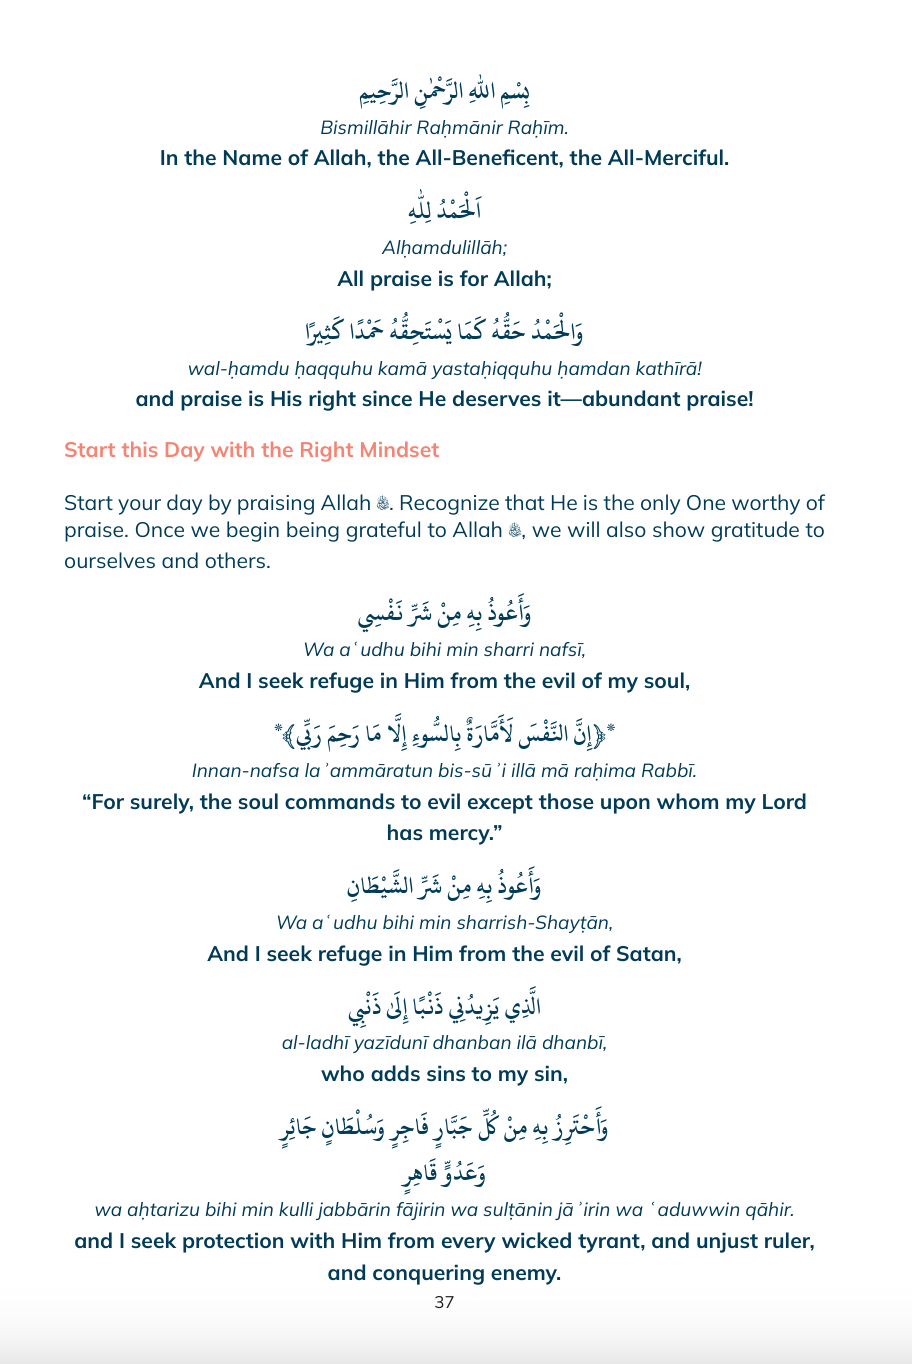 بِسْمِ اللهِ الرَّحْمٰنِ الرَّحِيمِ
Bismillāhir Raḥmānir Raḥīm.
In the Name of Allah, the All-Beneficent, the All-Merciful.
اَلْحَمْدُ لِلّٰهِ
Alḥamdulillāh;
All praise is for Allah;
وَالْحَمْدُ حَقُّهُ كَمَا يَسْتَحِقُّهُ حَمْدًا كَثِيرًا
wal-ḥamdu ḥaqquhu kamā yastaḥiqquhu ḥamdan kathīrā!
and praise is His right since He deserves it—abundant praise!
Start this Day with the Right Mindset
Start your day by praising Allah ﷻ. Recognize that He is the only One worthy of
praise. Once we begin being grateful to Allah ﷻ, we will also show gratitude to
ourselves and others.
وَأَعُوذُ بِهِ مِنْ شَرِّ نَفْسِي
Wa aʿudhu bihi min sharri nafsī,
And I seek refuge in Him from the evil of my soul,
*﴿إِنَّ النَّفْسَ لَأَمَّارَةٌ بِالسُّوءِ إِلَّا مَا رَحِمَ رَبِّي﴾*
Innan-nafsa laʾammāratun bis-sūʾi illā mā raḥima Rabbī.
“For surely, the soul commands to evil except those upon whom my Lord
has mercy.”
وَأَعُوذُ بِهِ مِنْ شَرِّ الشَّيْطَانِ
Wa aʿudhu bihi min sharrish-Shayṭān,
And I seek refuge in Him from the evil of Satan,
الَّذِي يَزِيدُنِي ذَنْبًا إِلَىٰ ذَنْبِي
al-ladhī yazīdunī dhanban ilā dhanbī,
who adds sins to my sin,
وَأَحْتَرِزُ بِهِ مِنْ كُلِّ جَبَّارٍ فَاجِرٍ وَسُلْطَانٍ جَائِرٍ
وَعَدُوٍّ قَاهِرٍ
wa aḥtarizu bihi min kulli jabbārin fājirin wa sulṭānin jāʾirin wa ʿaduwwin qāhir.
and I seek protection with Him from every wicked tyrant, and unjust ruler,
and conquering enemy.
37